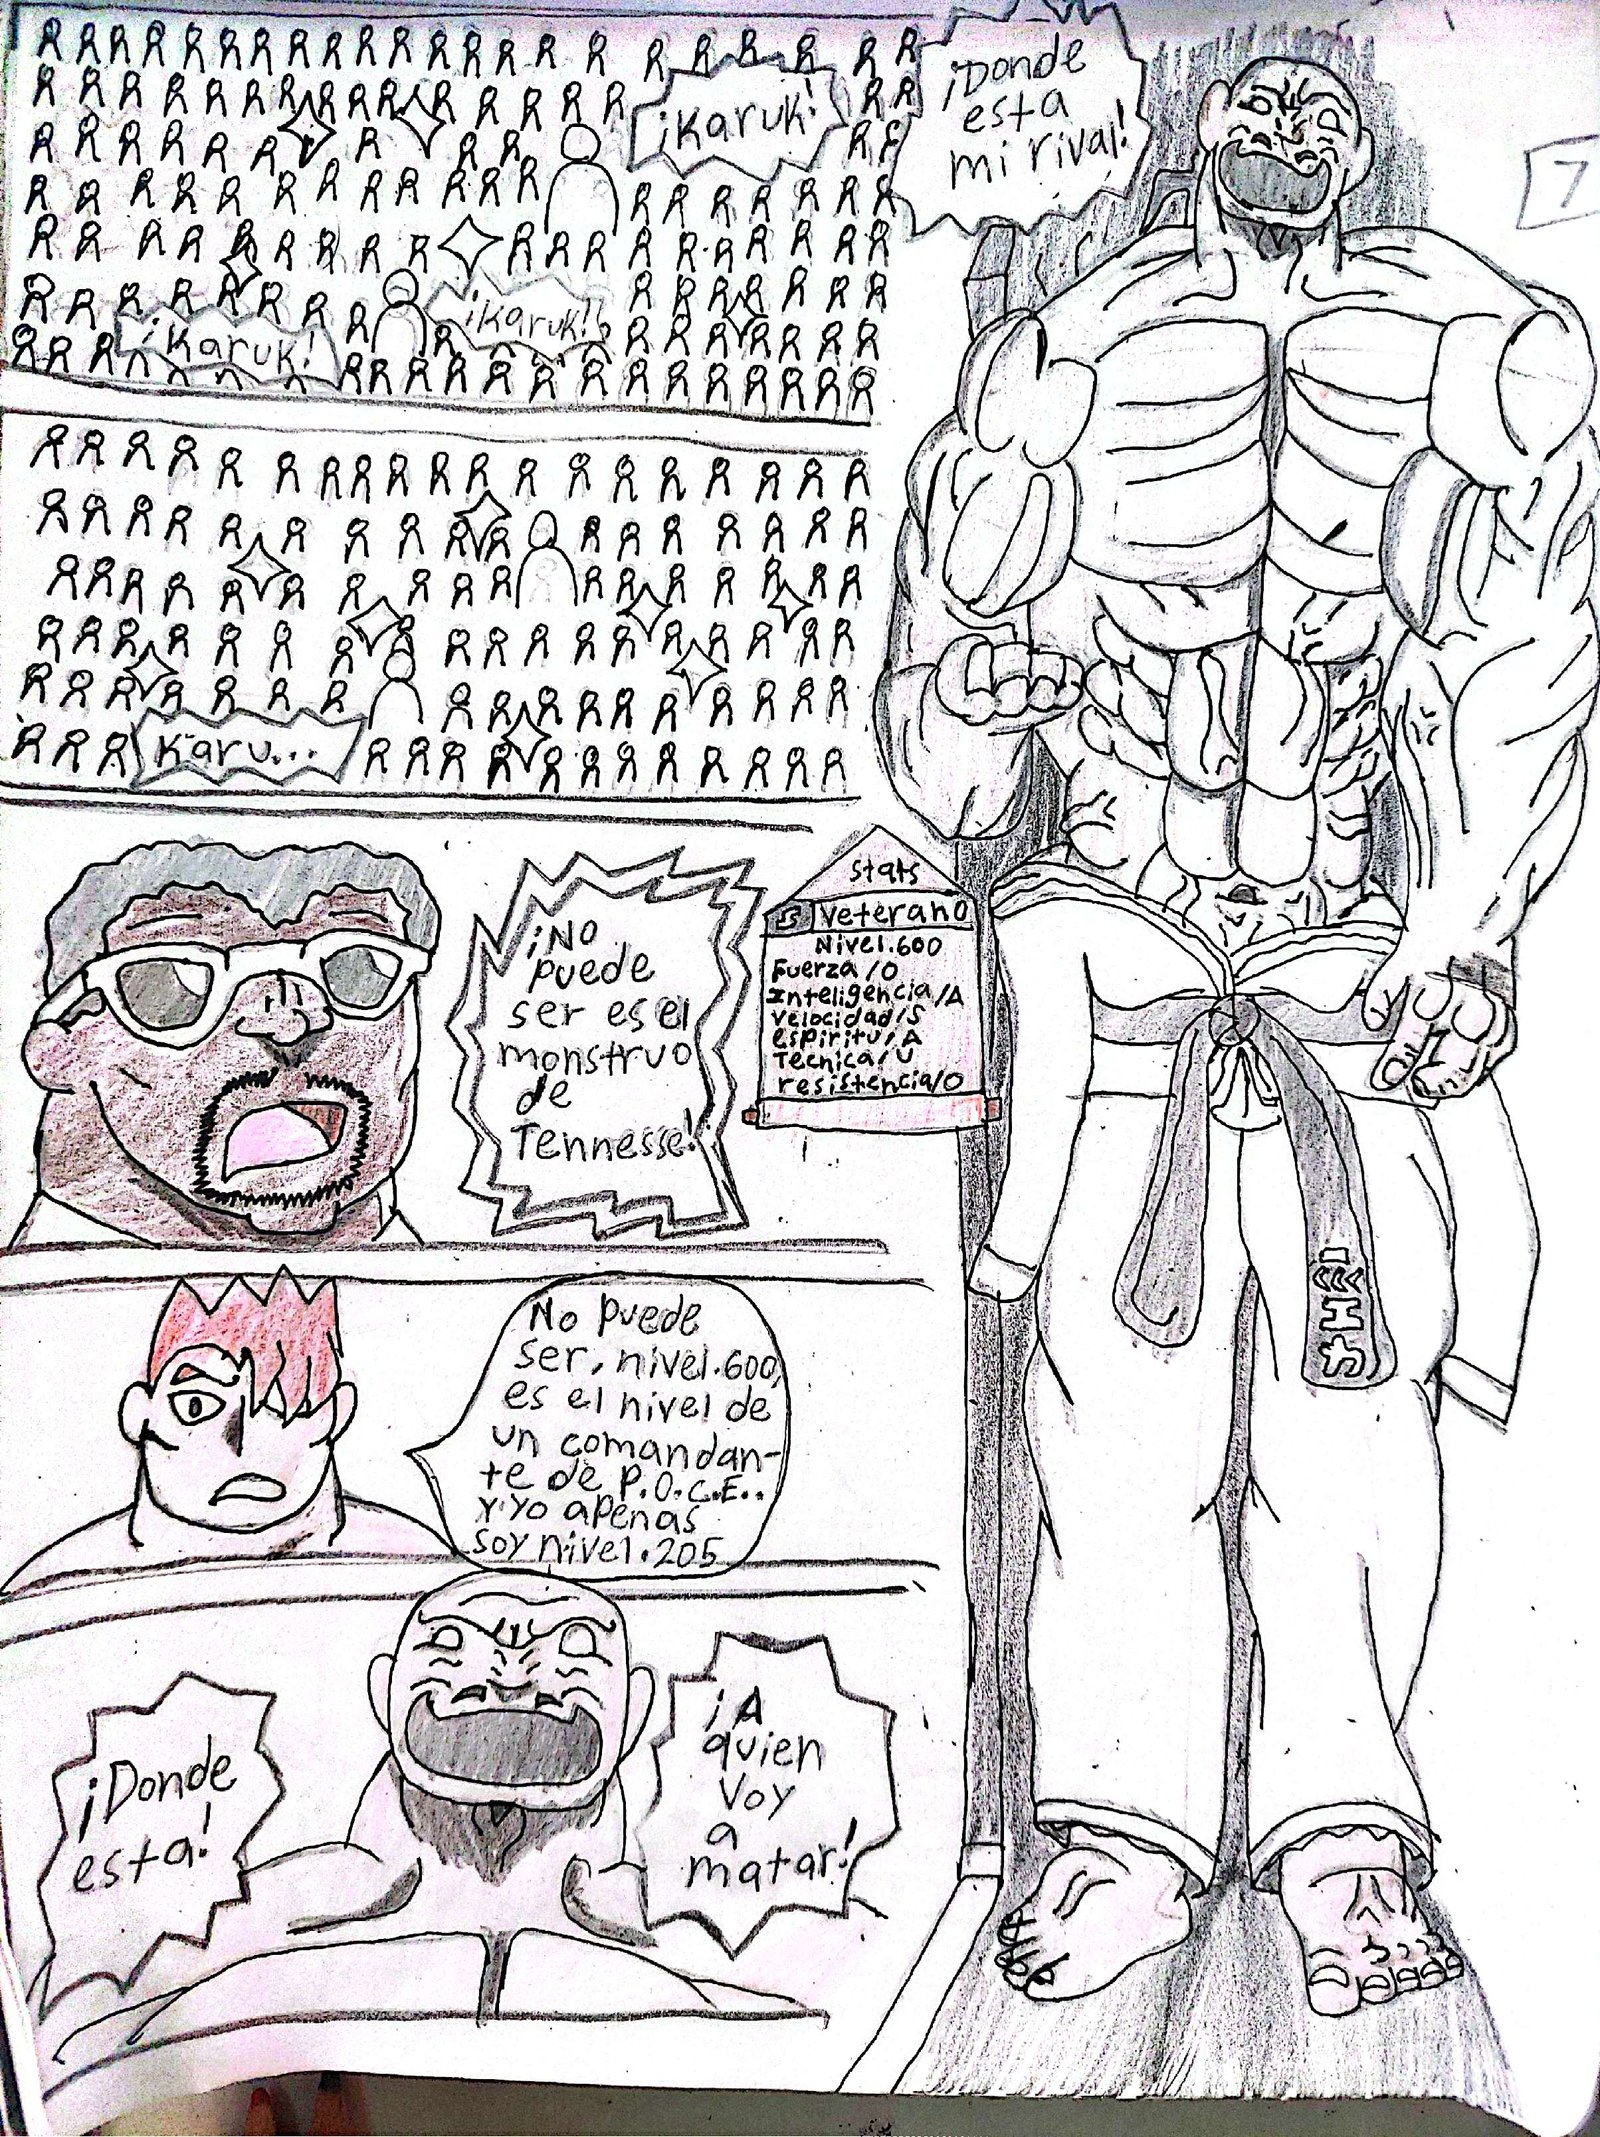 ¡Karuk!
¡Donde
esta
mi rival!
7
¡Karuk!
¡Karuk!
Karu...
¡No
puede
ser es el
monstruo
de
Tennesse!
Stats
S Veterano
Nivel.600
Fuerza/O
Inteligencia/A
Velocidad/S
espiritu/A
Tecnica/U
resistencia/O
No puede
ser, nivel.600,
es el nivel de
un comandan-
te de P.O.C.E..
Y yo apenas
soy nivel.205
¡Donde
esta!
¡A
quien
voy
a
matar!